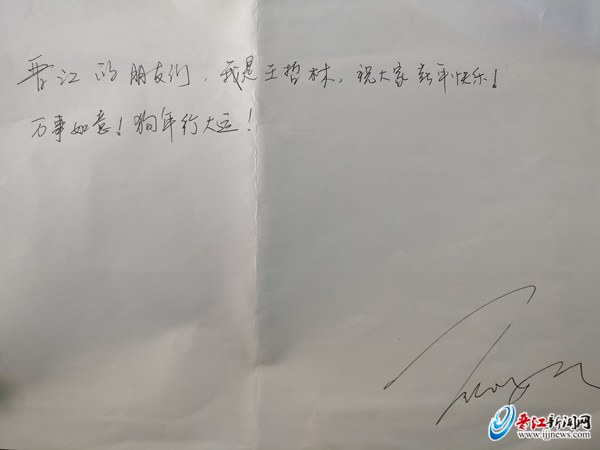 晋江的朋友们，我是王哲林，祝大家新年快乐！
万事如意！狗年行大运！
晋江新闻网
www.ijjnews.com